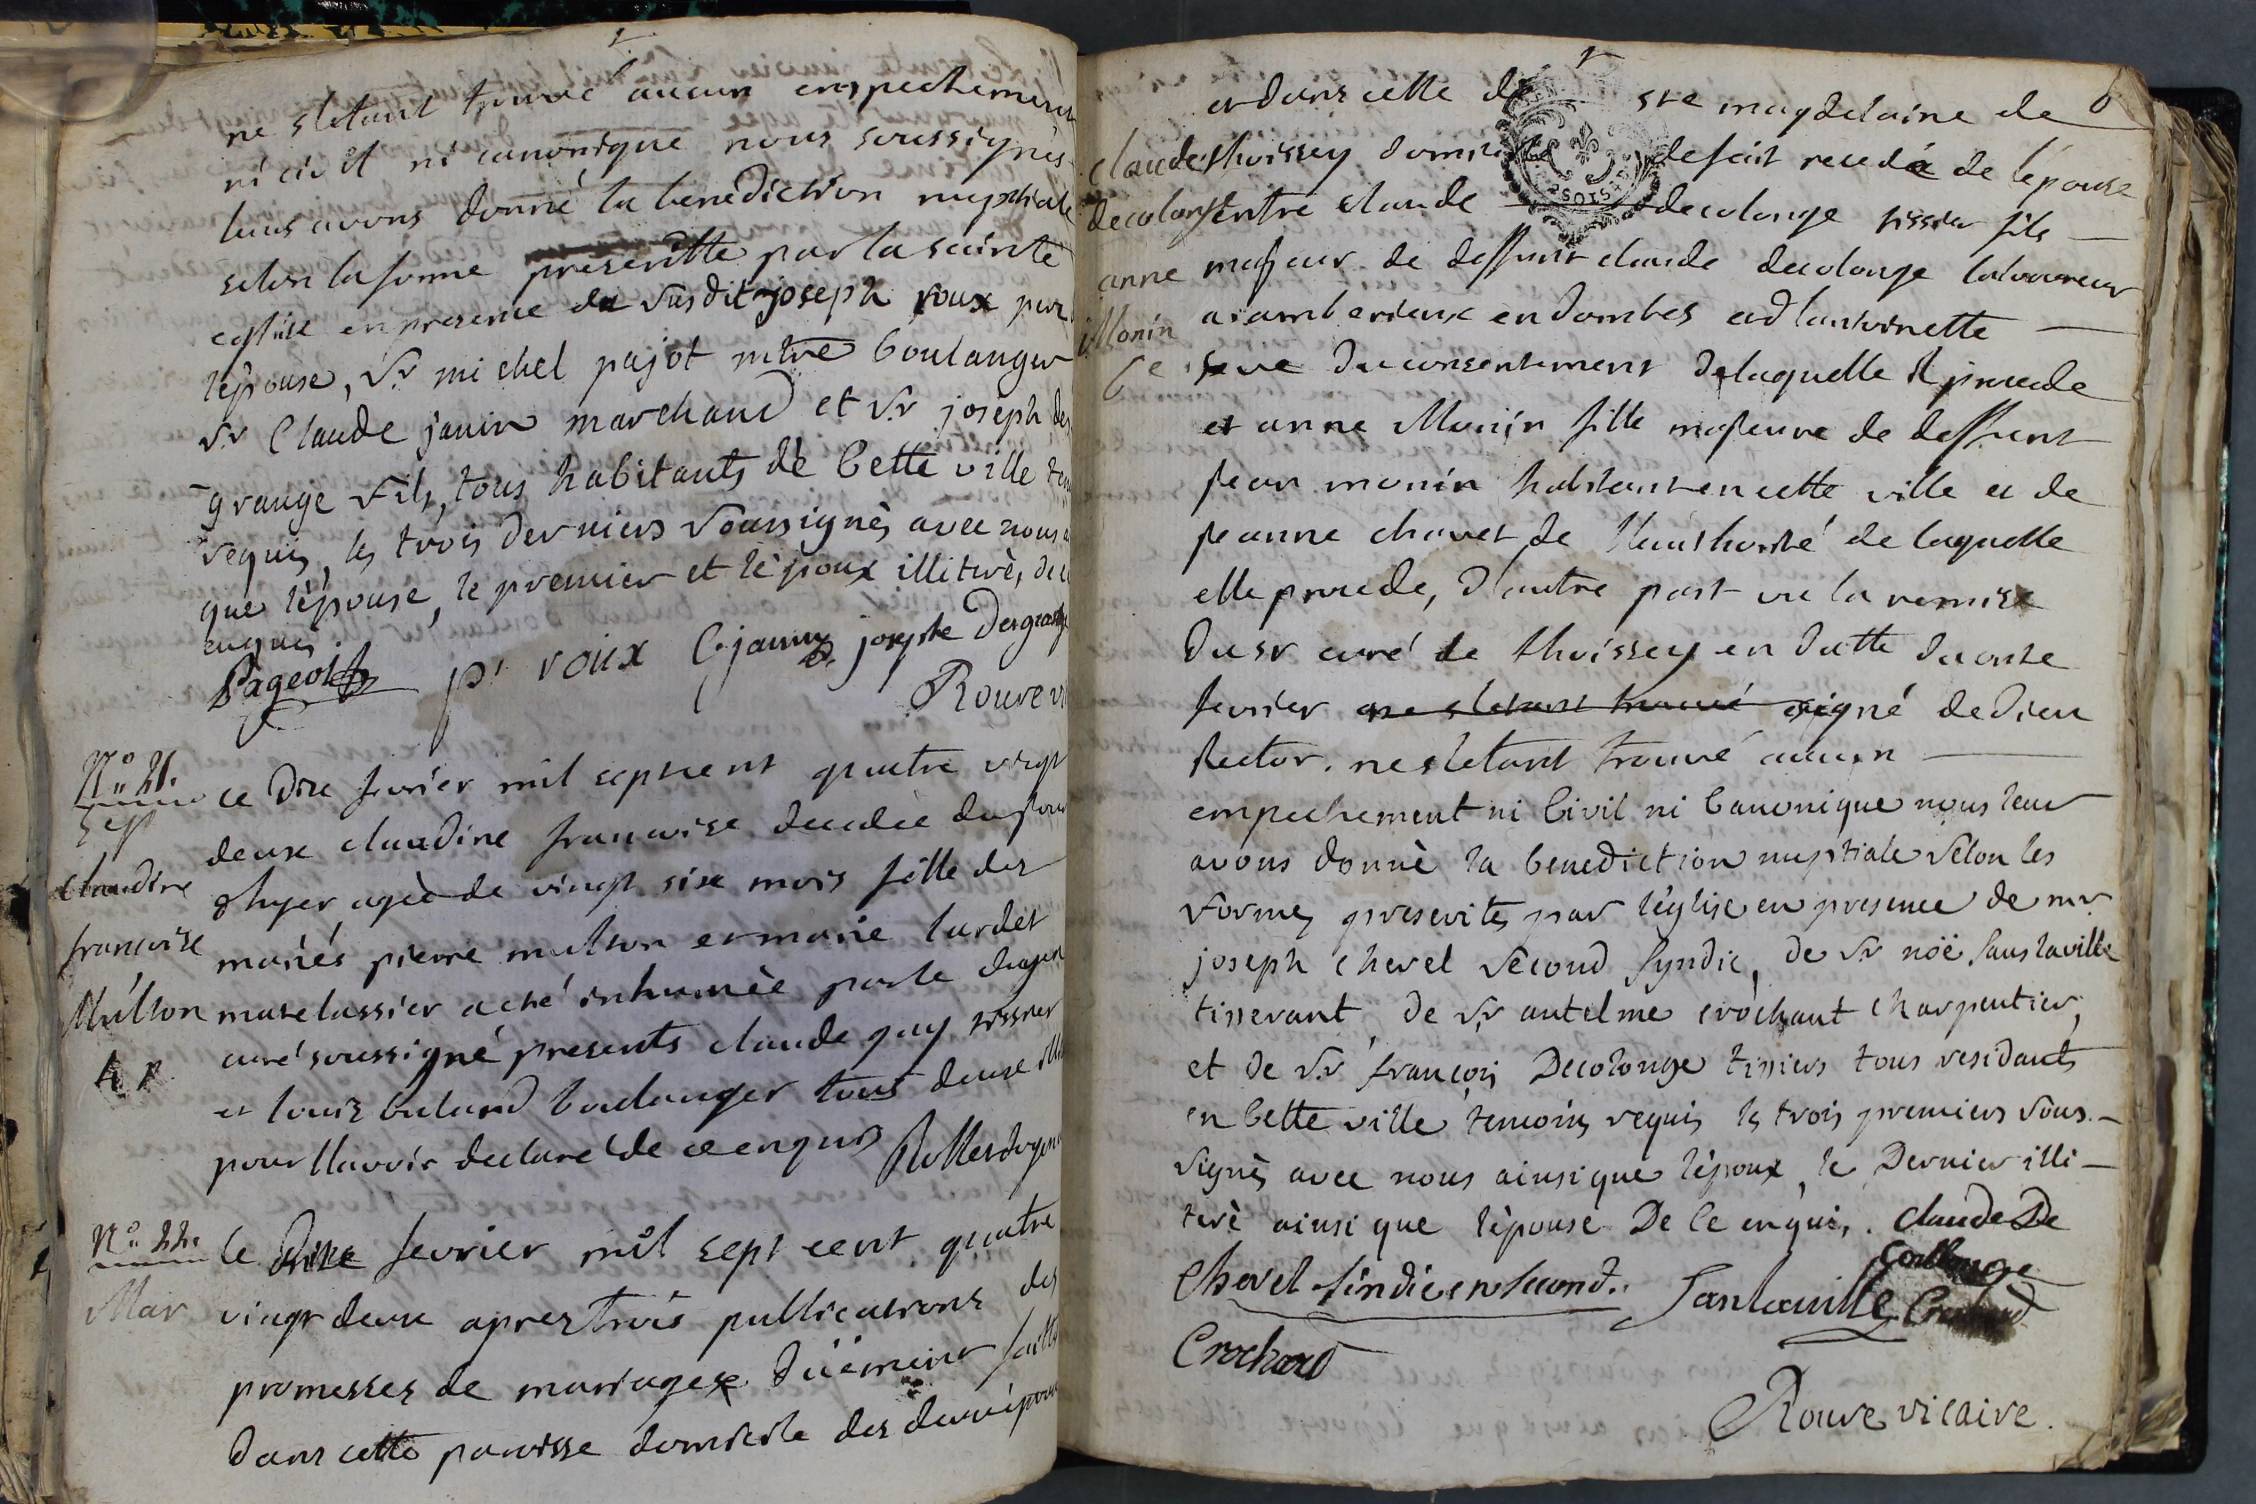 ne s'etant trouvé aucun empechement
ni civil ni canonique nous soussignés
leurs avons donné la benediction nuptiale
selon la forme prescritte par la sainte
eglise en presence du susdit joseph roux pere
l'épouse, Sr michel pajot mtre boulanger
Sr Claude janin marchand et Sr joseph des
grange fils, tous habitants de Cette ville
requis, les trois derniers soussignés avec nous
que l'épouse, le premier et l'époux illiterés de
enquis.
Pageot pr roux C. janin joseph Desgrange
Rouve
No 21.
Sep
Claudine
francoise
Multon
ce dix fevrier mil sept cent quatre vingt
deux claudine francoise decedée du jour
d'hyer agée de vingt six mois fille des
mariés pierre multon et marie lardet
matelassier a eté inhumée par le doyen
curé soussigné presents claude guy tissier
et louis buland boulanger tous deux
pour l'avoir declaré de ce enquis
No 22.
Mar
le onze fevrier mil sept cent quatre
vingt deux aprez trois publications des
promesses de mariages düement faittes
dans cette paroisse domicile des deux époux
6
et dans cette de ste magdelaine de
thoissey domicile de fait recedé de l'épouse
entre claude decolonge tissier fils
majeur de deffunt claude decolonge laboureur
a amberieux en dombes et d'antoinette
seve du consentement de laquelle il procede
et anne Monin fille majeure de deffunt
jean monin habitant en cette ville et de
jeanne chavet de l'authorité de laquelle
elle procede, d'autre part vu la remise
du sr curé de thoissey en datte du onze
fevrier ne s'etant trouvé signé dedieu
Rector. ne s'etant trouvé aucun
empechement ni Civil ni Canonique nous leur
avons donné la benediction nuptiale selon les
formes prescrites par l'église en presence de mr
joseph chevel second syndic, de Sr noë sanslaville
tisserant, de Sr antelme crochant charpentier,
et de Sr françois Decolonge tissiers tous residants
en Cette ville temoins requis les trois premiers sous-
signés avec nous ainsi que l'époux, le Dernier illi-
teré ainsi que l'épouse De Ce enquis,. claude De
Collonge
Claude
decolonge
anne
Monin
Chevel sindic en second. Sanlaville
Crochard
Rouve vicaire.